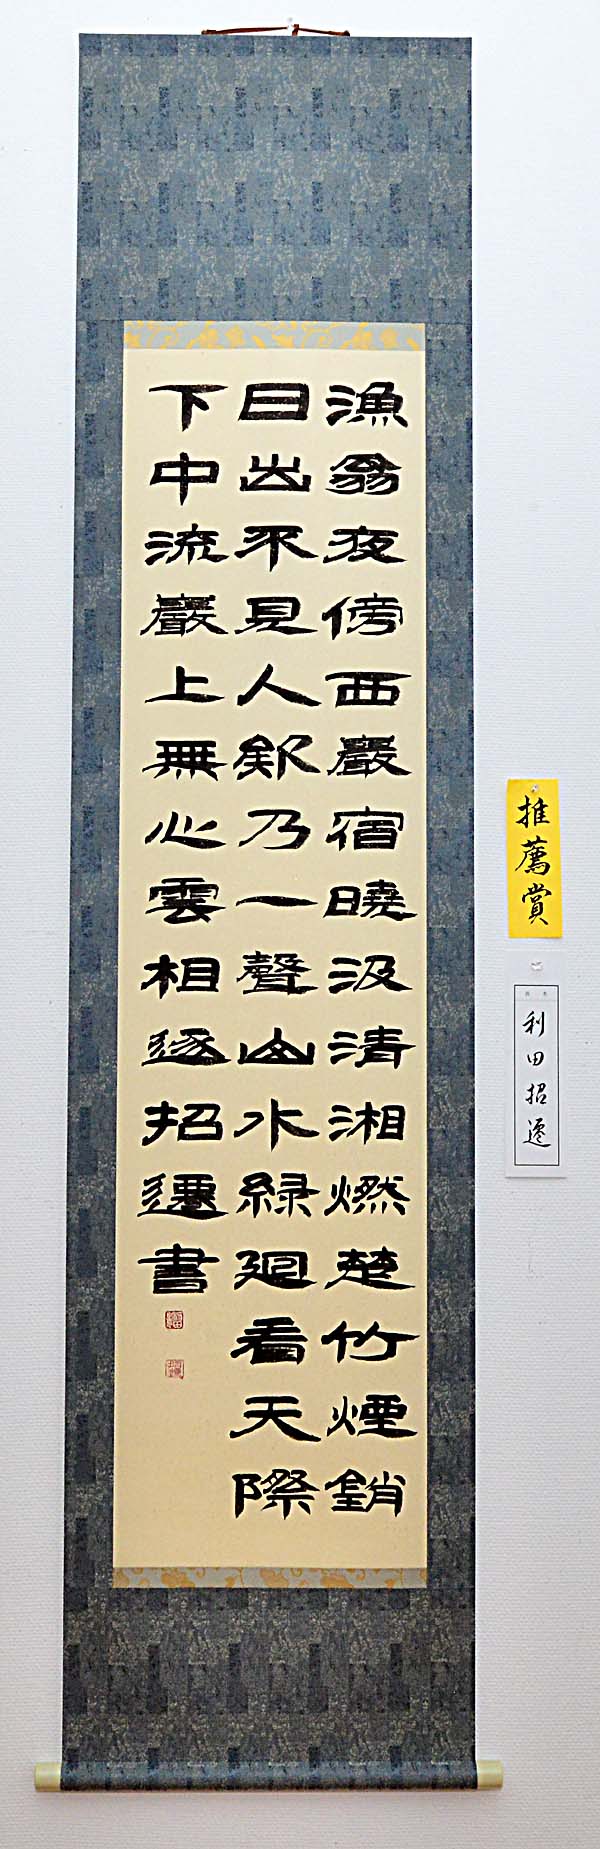 漁翁夜傍西巖宿曉汲清湘燃楚竹煙銷
日出不見人欸乃一聲山水緑廻看天際
下中流巖上無心雲相逐招遷書
推薦賞
利田招遷